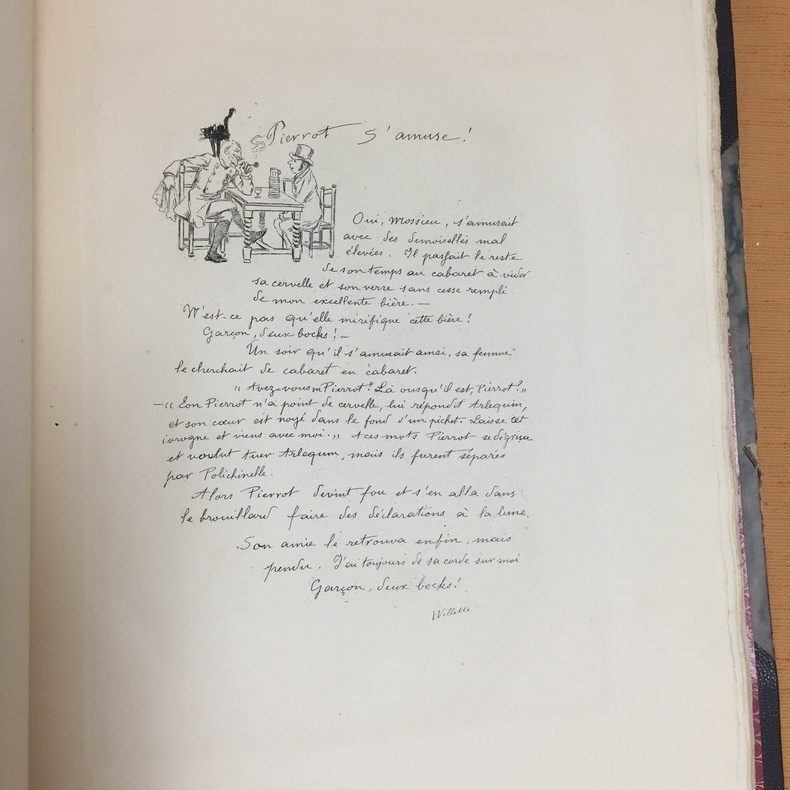 Pierrot s'amuse!
Oui, Mossieu, s'amusait
avec des demoiselles mal
élevées. Il passait le reste
de son temps au cabaret à vider
sa cervelle et son verre sans cesse rempli
de mon excellente bière. —
N'est-ce pas qu'elle mirifique cette bière!
Garçon, deux bocks! —
Un soir qu'il s'amusait ainsi, sa femme
le cherchait de cabaret en cabaret.
" Avez-vous Pierrot? Là ousqu'il est, Pierrot? "
— " Ton Pierrot n'a point de cervelle, lui répondit Arlequin,
et son cœur est noyé dans le fond d'un pichet. Laisse cet
ivrogne et viens avec moi. " A ces mots Pierrot se dégrisa
et voulut tuer Arlequin, mais ils furent séparés
par Polichinelle.
Alors Pierrot devint fou et s'en alla dans
le brouillard faire des déclarations à la lune.
Son amie le retrouva enfin, mais
pendu. J'ai toujours de sa corde sur moi
Garçon, deux bocks!
Willette